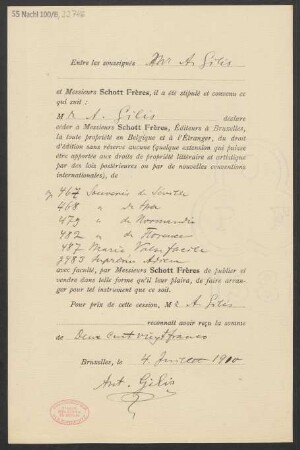 55 Nachl 100/B,
Entre les soussignés Mr A. Gilis
et Messieurs Schott Frères, il a été stipulé et convenu ce
qui suit :
M R A. Gilis déclare
céder à Messieurs Schott Frères, Éditeurs à Bruxelles,
la toute propriété en Belgique et à l'Étranger, du droit
d'édition sans réserve aucune (quelque extension qui puisse
être apportée aux droits de propriété littéraire et artistique
par des lois postérieures ou par de nouvelles conventions
internationales), de
467 Souvenir de
468 " de Spa
479 " de Normandie
482 " de Florence
487 Maria Valse facile
7483 Suprême Adieu
avec faculté, par Messieurs Schott Frères de publier et
vendre dans telle forme qu'il leur plaira, de faire arran-
ger pour tel instrument que ce soit.
Pour prix de cette cession, M r A Gilis
reconnait avoir reçu la somme
de Deux cent vingt francs
Bruxelles, le 4 Juillet 1910
Ant. Gilis